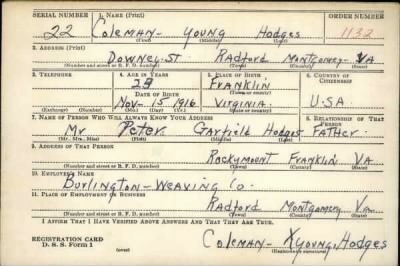 SERIAL NUMBER 1. NAME (Print) ORDER NUMBER
22 Coleman - Young Hodges 1132
(First) (Middle) (Last)
2. ADDRESS (Print)
Downey-St. Radford Montgomery VA
(Number and street or R. F. D. number) (Town) (County) (State)
3. TELEPHONE 4. AGE IN YEARS 5. PLACE OF BIRTH 6. COUNTRY OF CITIZENSHIP
Franklin
DATE OF BIRTH (Town or county)
Nov- 15 1916 Virginia U.S.A
(Exchange) (Number) (Mo.) (Day) (Yr.) (State or country)
7. NAME OF PERSON WHO WILL ALWAYS KNOW YOUR ADDRESS 8. RELATIONSHIP OF THAT PERSON
Mr Peter Garfield Hodges Father
(Mr., Mrs., Miss) (First) (Middle) (Last)
9. ADDRESS OF THAT PERSON
Rockymount Franklin VA
(Number and street or R. F. D. number) (Town) (County) (State)
10. EMPLOYER'S NAME
Burlington - Weaving Co.
11. PLACE OF EMPLOYMENT OR BUSINESS
Radford Montgomery Va
(Number and street or R. F. D. number) (Town) (County) (State)
I AFFIRM THAT I HAVE VERIFIED ABOVE ANSWERS AND THAT THEY ARE TRUE.
REGISTRATION CARD
D. S. S. Form 1 (over) Coleman - X Young Hodges
(Registrant's signature)